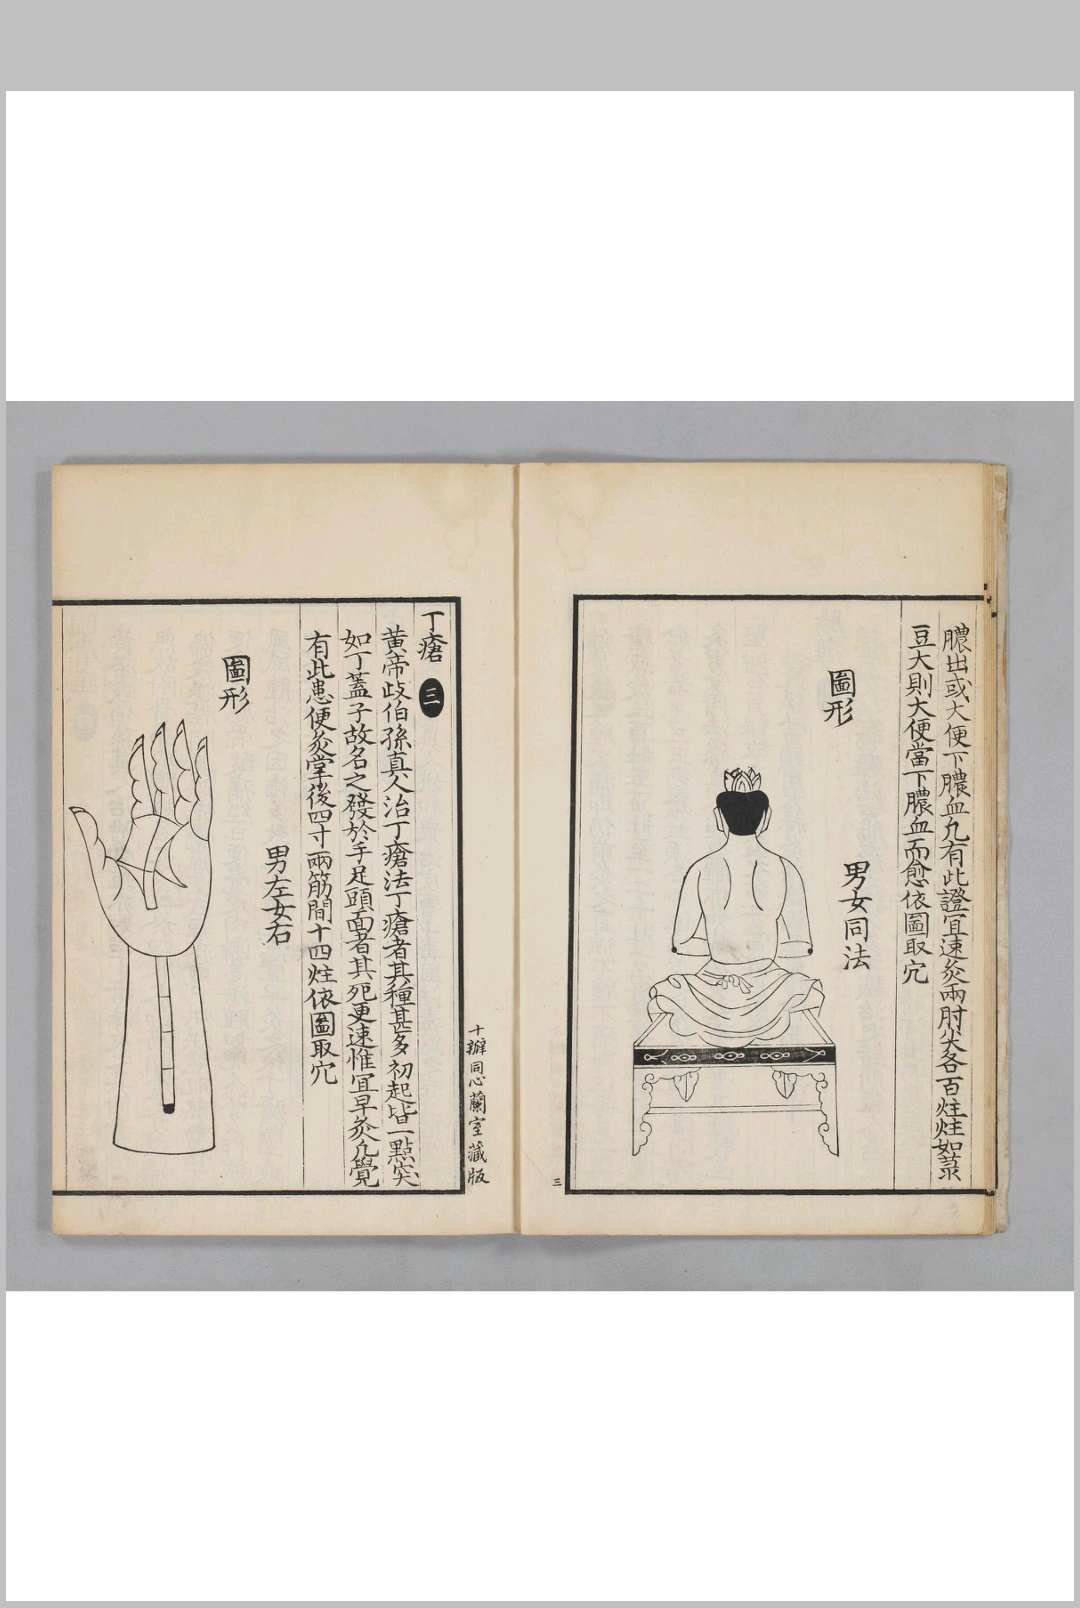 膿出或大便下膿血凢有此證宜速灸兩肘尖各百炷炷如菉
豆大則大便當下膿血而愈依圖取穴
圖形
男女同法
三
十瓣同心蘭室藏版
丁瘡 三
黃帝歧伯孫真人治丁瘡法丁瘡者其種甚多初起皆一點突
如丁蓋子故名之發於手足頭面者其死更速惟宜早灸凢覺
有此患便灸掌後四寸兩筋間十四炷依圖取穴
圖形
男左女右